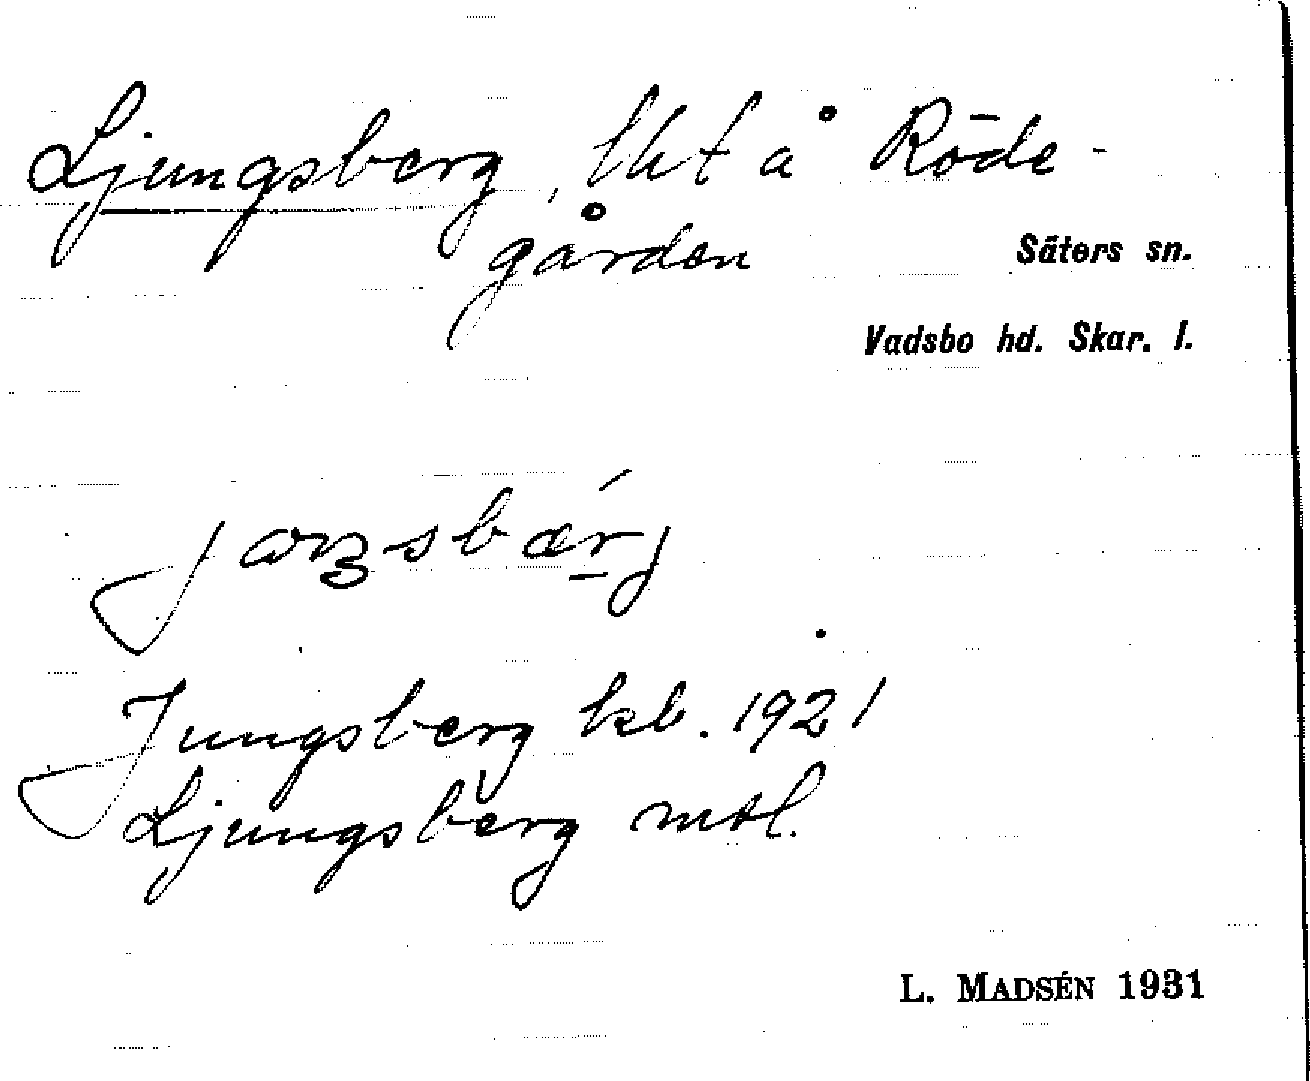 Ljungsberg, lht å Röde-
gården
Säters sn.
Vadsbo hd. Skar. l.
Jungsberg kb. 1921
Ljungsberg mtl.
L. MADSÉN 1931